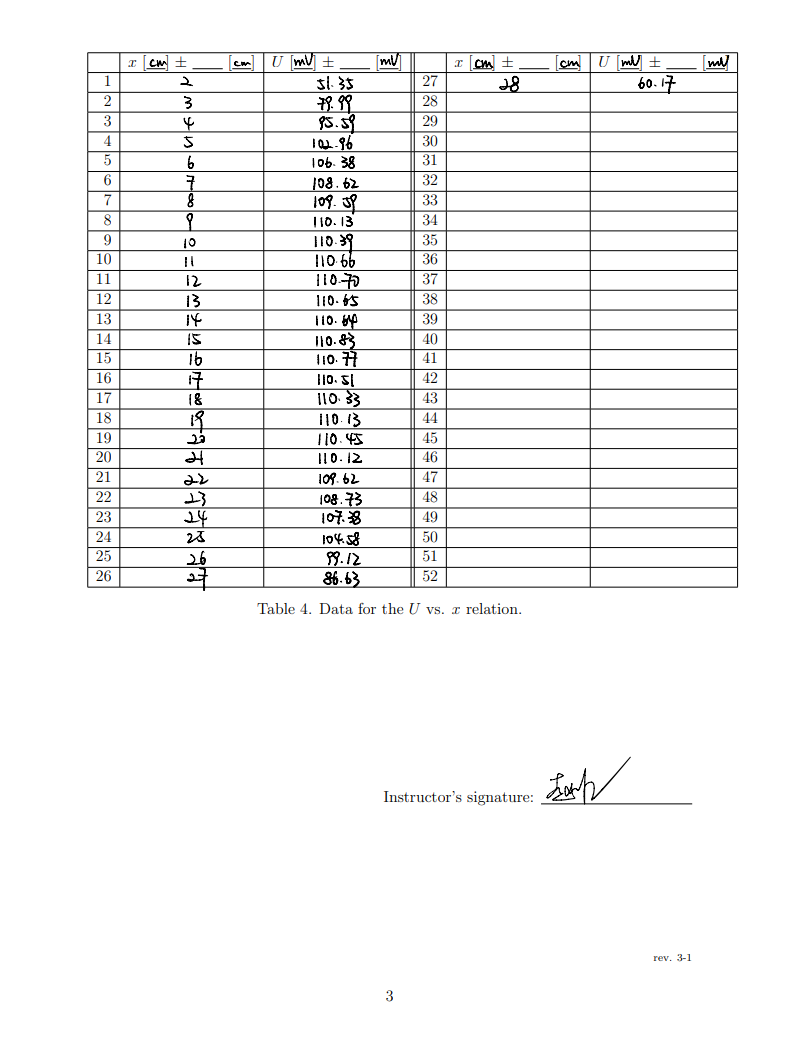 x [cm] ± ____ [cm] U [mV] ± ____ [mV] x [cm] ± ____ [cm] U [mV] ± ____ [mV]
1 2 51.35 27 28 60.17
2 3 79.99 28
3 4 95.59 29
4 5 102.96 30
5 6 106.38 31
6 7 108.62 32
7 8 109.59 33
8 9 110.13 34
9 10 110.39 35
10 11 110.66 36
11 12 110.70 37
12 13 110.65 38
13 14 110.64 39
14 15 110.83 40
15 16 110.77 41
16 17 110.51 42
17 18 110.33 43
18 19 110.13 44
19 20 110.45 45
20 21 110.12 46
21 22 109.62 47
22 23 108.73 48
23 24 107.38 49
24 25 104.58 50
25 26 99.12 51
26 27 86.63 52
Table 4. Data for the U vs. x relation.
Instructor's signature:
rev. 3-1
3